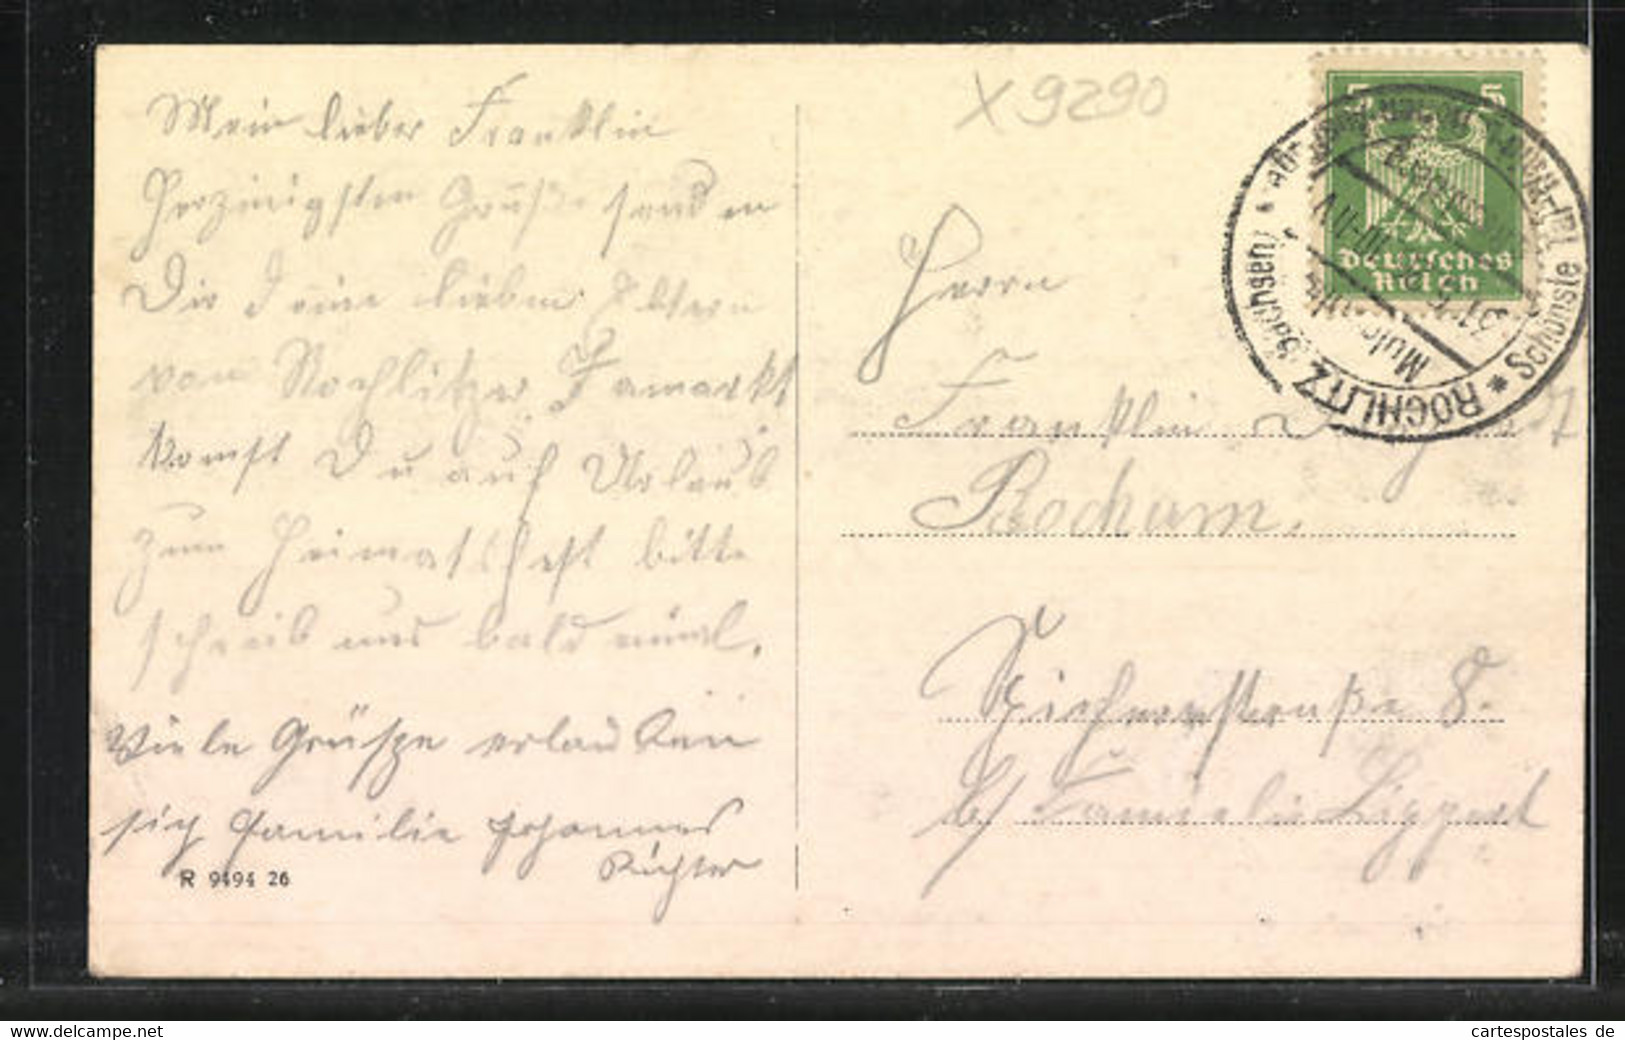 Mein lieber Franklin
Herzinnigsten Grüße senden
Dir Deine lieben Eltern
vom Rochlitzer Jamarkt
komst Du auf Urlaub
zum Heimatsfest bitte
schreib uns bald einmal.
Viele Grüsze erlauben
sich Familie Johannes
Richter
R 9494 26
X 9290
5 5
Deutsches
Reich
ROCHLITZ (Sachsen)
Schönste
Herrn
Franklin
Bochum.
straße 8.
b/ Familie Lippert
www.delcampe.net
cartespostales de